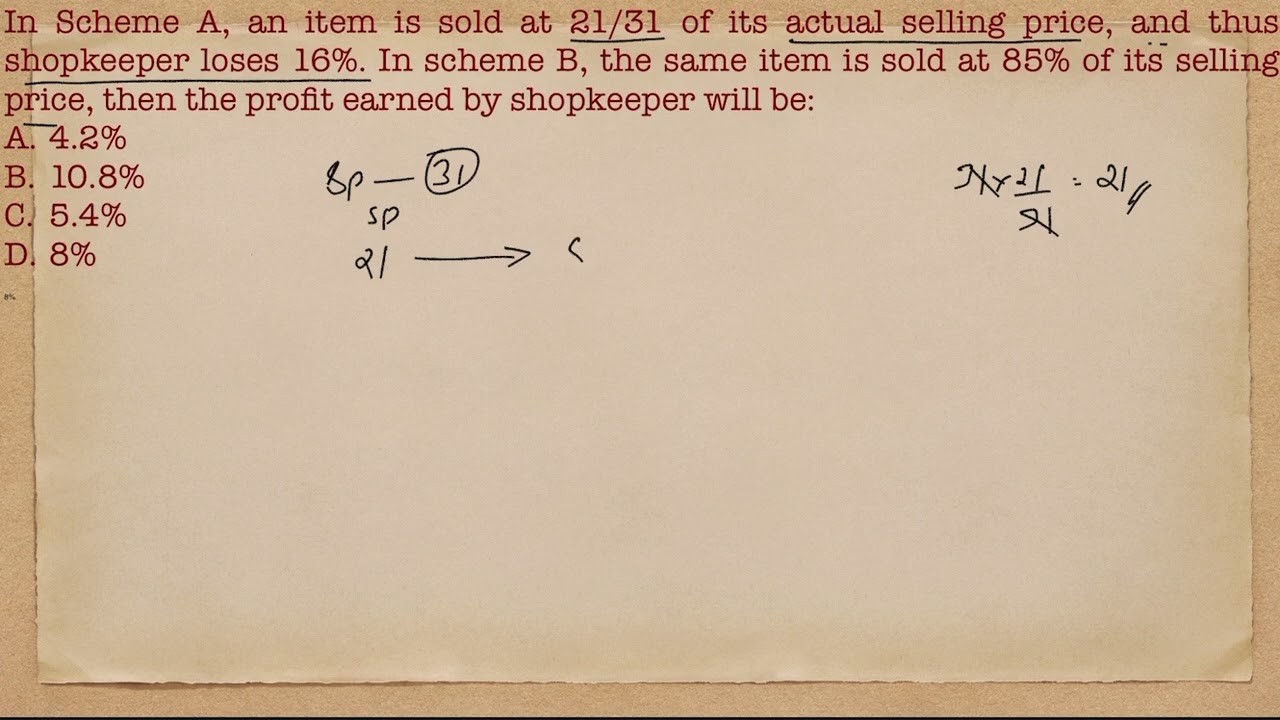 In Scheme A, an item is sold at 21/31 of its actual selling price, and thus
shopkeeper loses 16%. In scheme B, the same item is sold at 85% of its selling
price, then the profit earned by shopkeeper will be:
A. 4.2%
B. 10.8%
C. 5.4%
D. 8%
8%
Sp — 31
sp
21 →
31 × 21/31 = 21